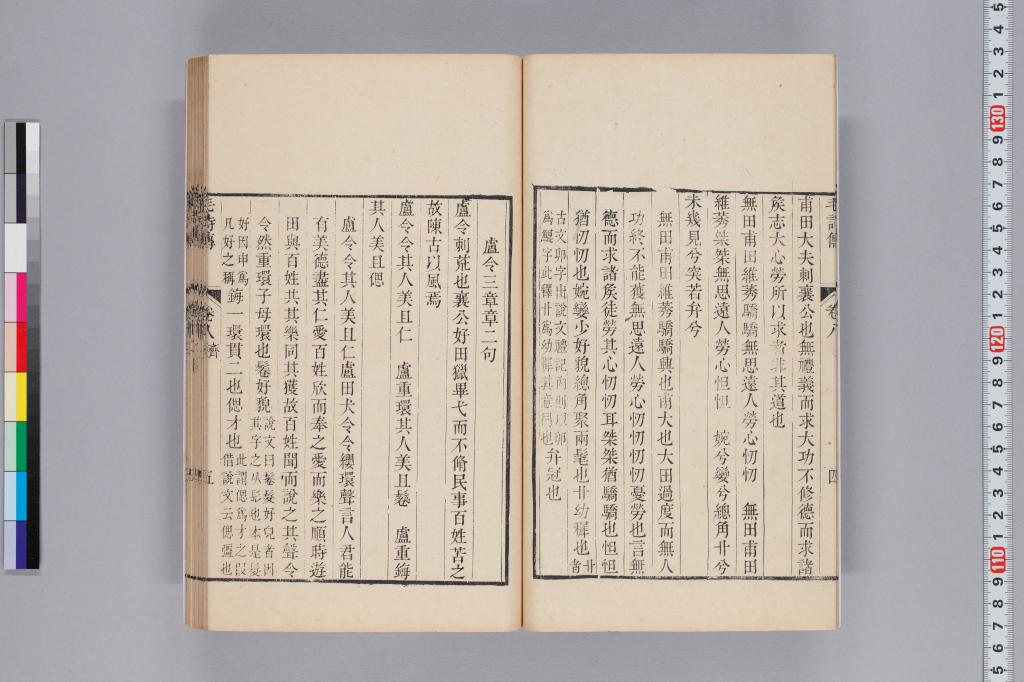 甫田大夫刺襄公也無禮義而求大功不修德而求諸
矦志大心勞所以求者非其道也
無田甫田維莠驕驕無思遠人勞心忉忉　無田甫田
維莠桀桀無思遠人勞心怛怛　婉兮孌兮總角丱兮
未幾見兮突若弁兮
無田甫田維莠驕驕興也甫大也大田過度而無人
功終不能獲無思遠人勞心忉忉忉忉憂勞也言無
德而求諸矦徒勞其心忉忉耳桀桀猶驕驕也怛怛
猶忉忉也婉孌少好貌總角聚兩髦也丱幼穉也丱者
古文卵字出說文禮記內則以卵
為鯤字此釋丱為幼穉其意同也弁冠也
毛詩傳
卷八
四
盧令三章章二句
盧令刺荒也襄公好田獵畢弋而不脩民事百姓苦之
故陳古以風焉
盧令令其人美且仁　盧重環其人美且鬈　盧重鋂
其人美且偲
盧令令其人美且仁盧田犬令令纓環聲言人君能
有美德盡其仁愛百姓欣而奉之愛而樂之順時遊
田與百姓共其樂同其獲故百姓聞而說之其聲令
令然重環子母環也鬈好貌說文曰鬈髮好皃者因
其字之从髟也本是髮
好因申為
凡好之稱鋂一環貫二也偲才也此謂偲為才之叚
借說文云偲彊也
毛詩傳
卷八
齊
五